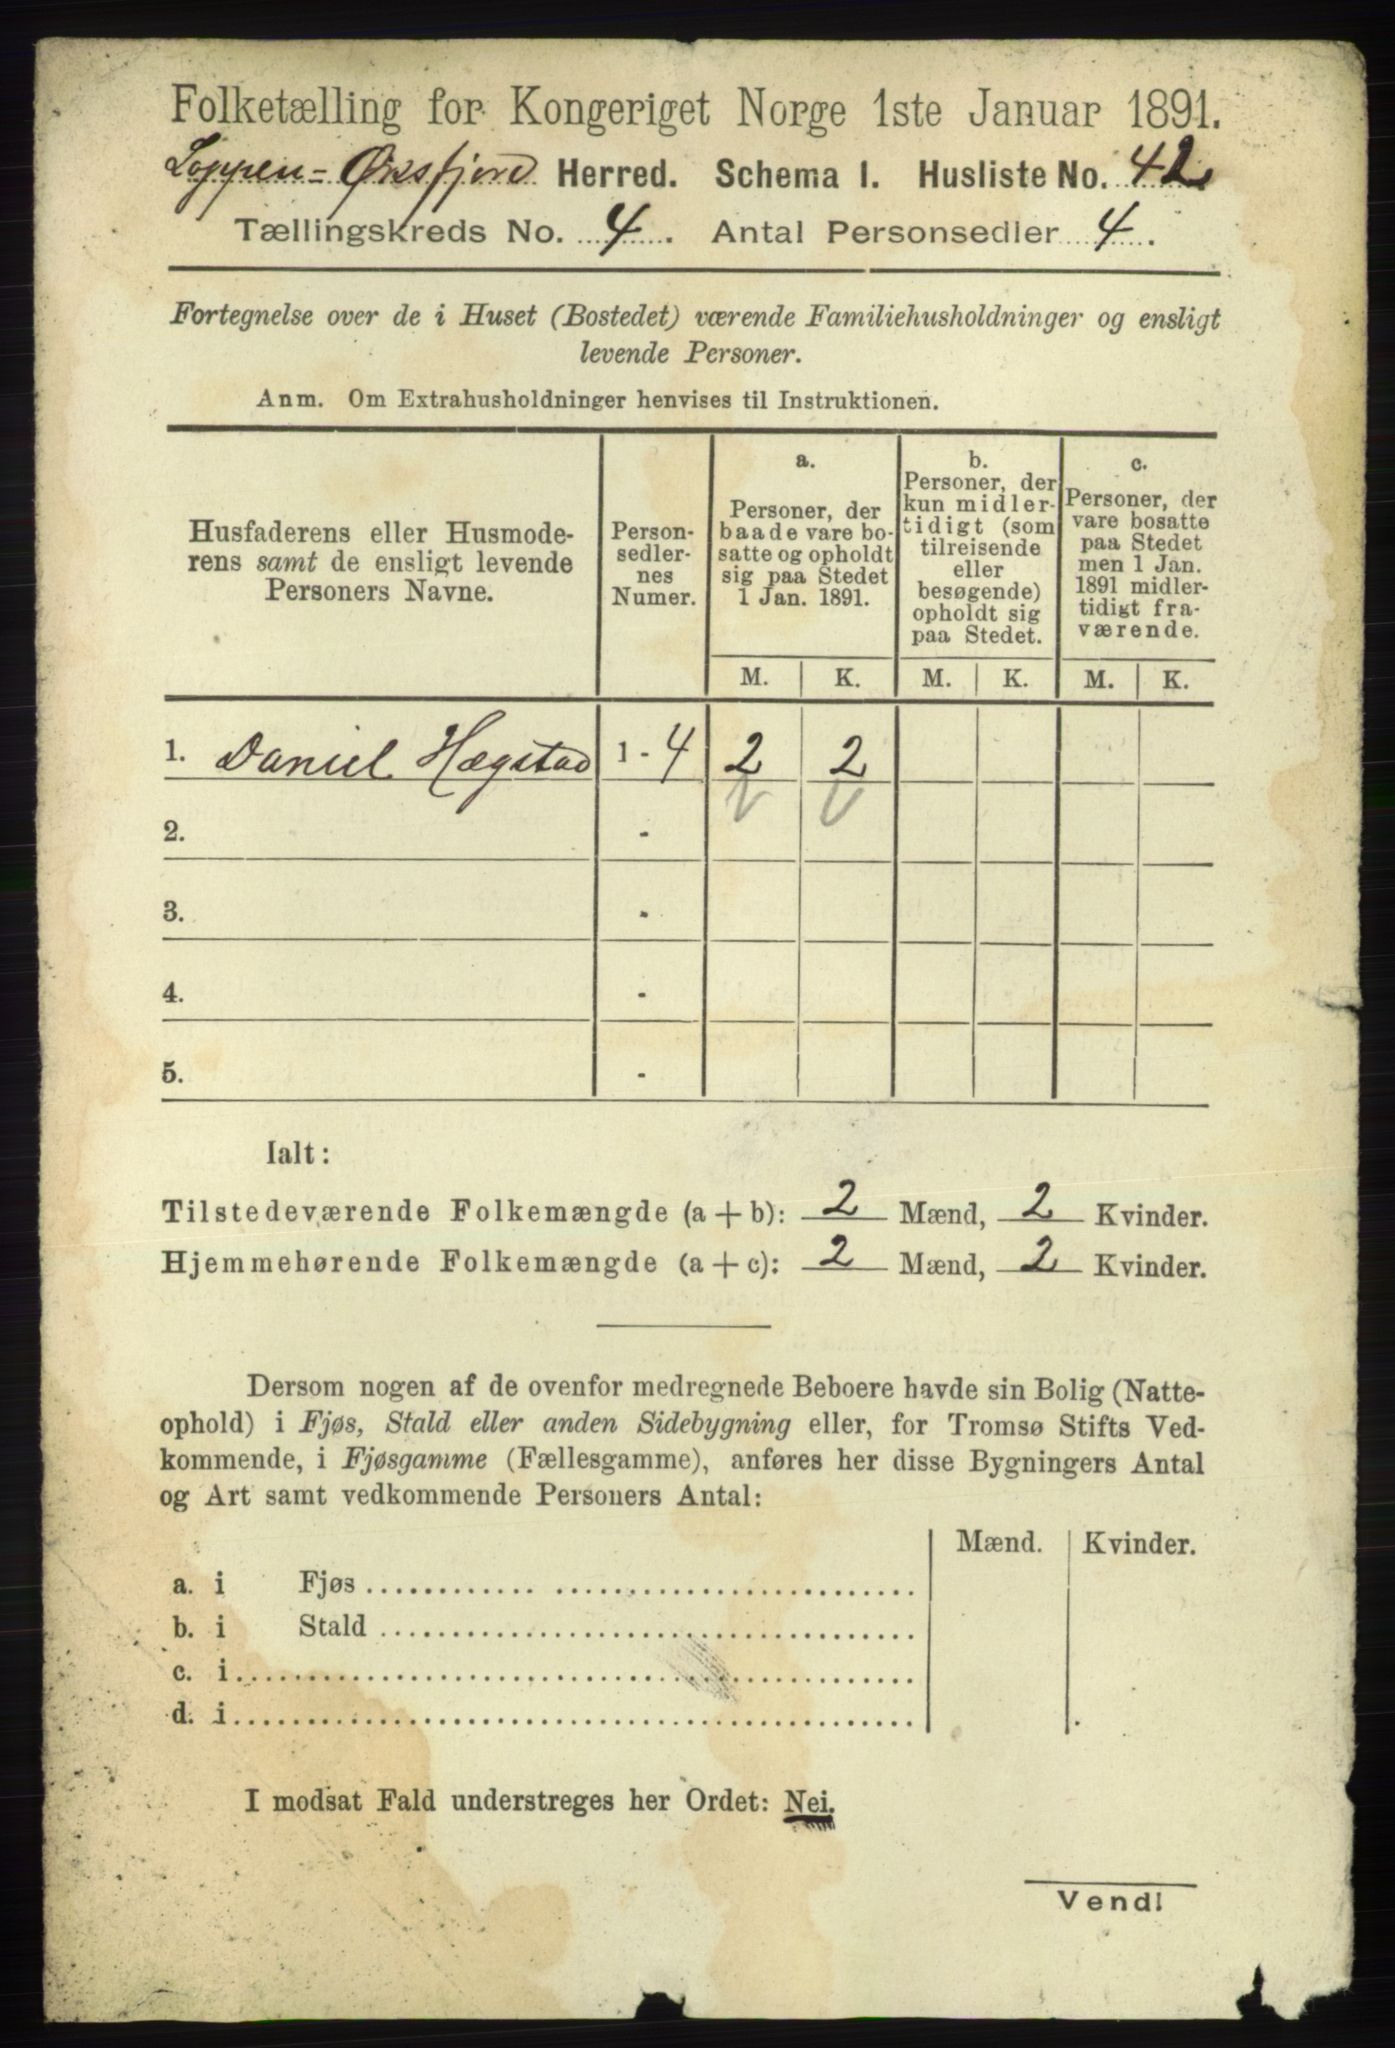 Folketælling for Kongeriget Norge 1ste Januar 1891.
Loppen=Øksfjord Herred. Schema I. Husliste No. 42
Tællingskreds No. 4. Antal Personsedler 4.
Fortegnelse over de i Huset (Bostedet) værende Familiehusholdninger og ensligt
levende Personer.
Anm. Om Extrahusholdninger henvises til Instruktionen.
Husfaderens eller Husmode-
rens samt de ensligt levende
Personers Navne.
Person-
sedler-
nes
Numer.
a.
Personer, der
baade vare bo-
satte og opholdt
sig paa Stedet
1 Jan. 1891.
b.
Personer, der
kun midler-
tidigt (som
tilreisende
eller
besøgende)
opholdt sig
paa Stedet.
c.
Personer, der
vare bosatte
paa Stedet
men 1 Jan.
1891 midler-
tidigt fra-
værende.
M. K. M. K. M. K.
1. Daniel Hægstad 1 - 4 2 2
2. -
3. -
4. -
5. -
Ialt:
Tilstedeværende Folkemængde (a + b): 2 Mænd, 2 Kvinder.
Hjemmehørende Folkemængde (a + c): 2 Mænd, 2 Kvinder.
Dersom nogen af de ovenfor medregnede Beboere havde sin Bolig (Natte-
ophold) i Fjøs, Stald eller anden Sidebygning eller, for Tromsø Stifts Ved-
kommende, i Fjøsgamme (Fællesgamme), anføres her disse Bygningers Antal
og Art samt vedkommende Personers Antal:
Mænd. Kvinder.
a. i Fjøs
b. i Stald
c. i
d. i
I modsat Fald understreges her Ordet: Nei.
Vend!